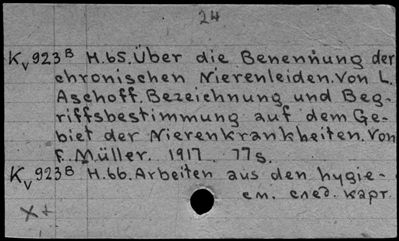 24
Kv 923ᴮ H.65. Über die Benennung der
chronischen Nierenleiden. Von L.
Aschoff. Bezeichnung und Beg-
riffsbestimmung auf dem Ge-
biet der Nierenkrankheiten. Von
F. Müller. 1917. 77s.
Kv 923ᴮ H.66. Arbeiten aus den hygie-
см. след. карт.